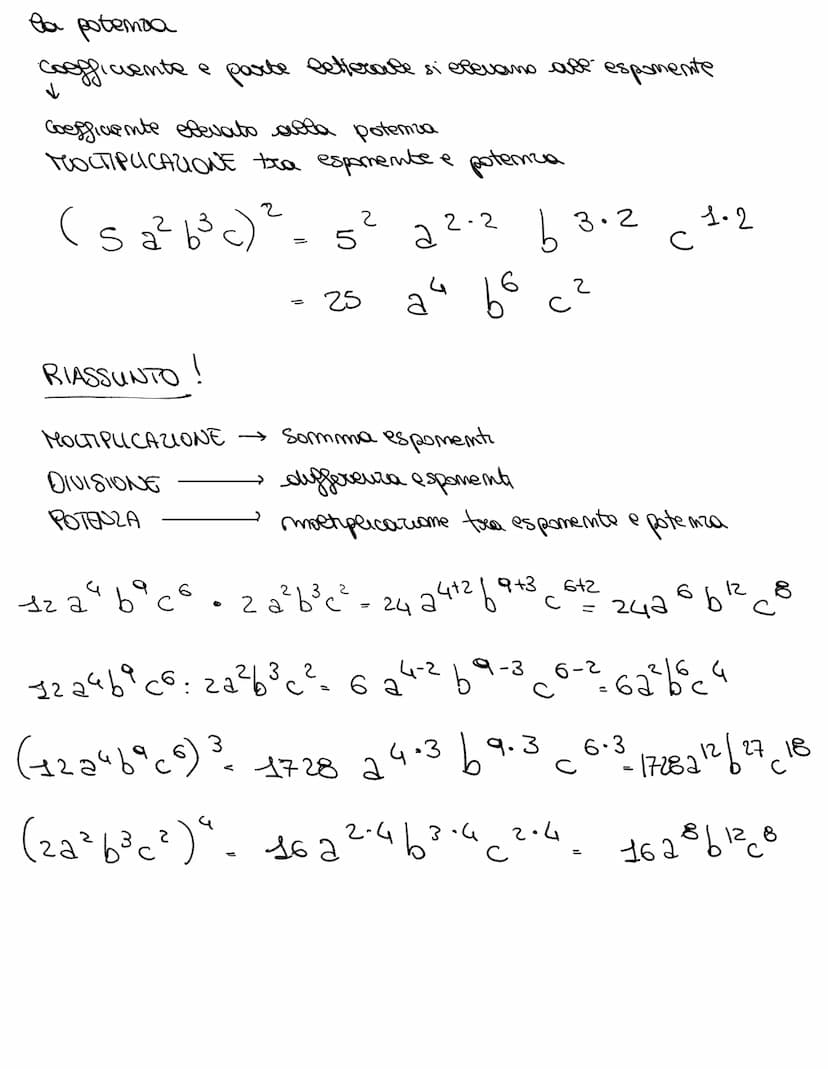 la potenza
coefficiente e parte letterale si elevano all'esponente
↓
coefficiente elevato alla potenza
MOLTIPLICAZIONE tra esponente e potenza
(5a²b³c)² = 5² a²·² b³·² c¹·²
= 25 a⁴ b⁶ c²
RIASSUNTO!
MOLTIPLICAZIONE → somma esponenti
DIVISIONE → differenza esponenti
POTENZA → moltiplicazione tra esponente e potenza
12a⁴b⁹c⁶ · 2a²b³c² = 24a⁴⁺²b⁹⁺³c⁶⁺² = 24a⁶b¹²c⁸
12a⁴b⁹c⁶ : 2a²b³c² = 6a⁴⁻²b⁹⁻³c⁶⁻² = 6a²b⁶c⁴
(12a⁴b⁹c⁶)³ = 1728 a⁴·³ b⁹·³ c⁶·³ = 1728a¹²b²⁷c¹⁸
(2a²b³c²)⁴ = 16a²·⁴b³·⁴c²·⁴ = 16a⁸b¹²c⁸